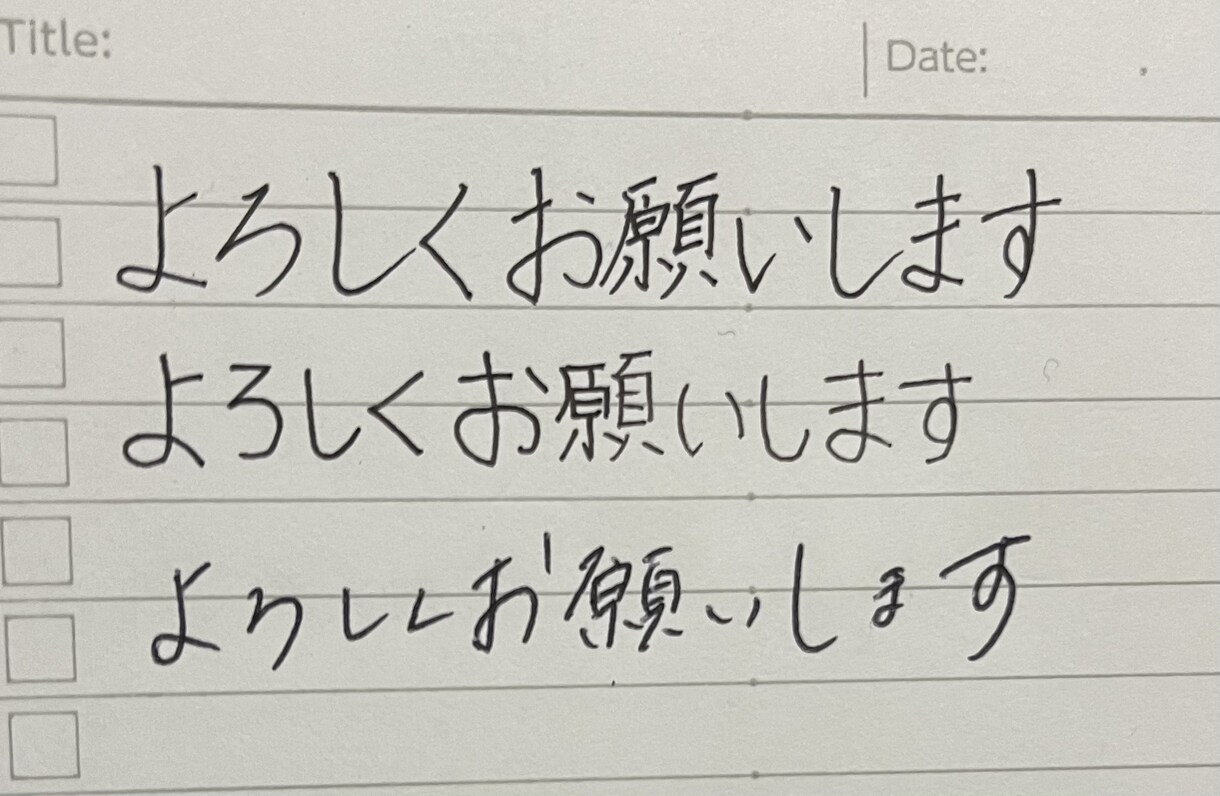 Title: Date:
よろしくお願いします
よろしくお願いします
よろしくお願いします